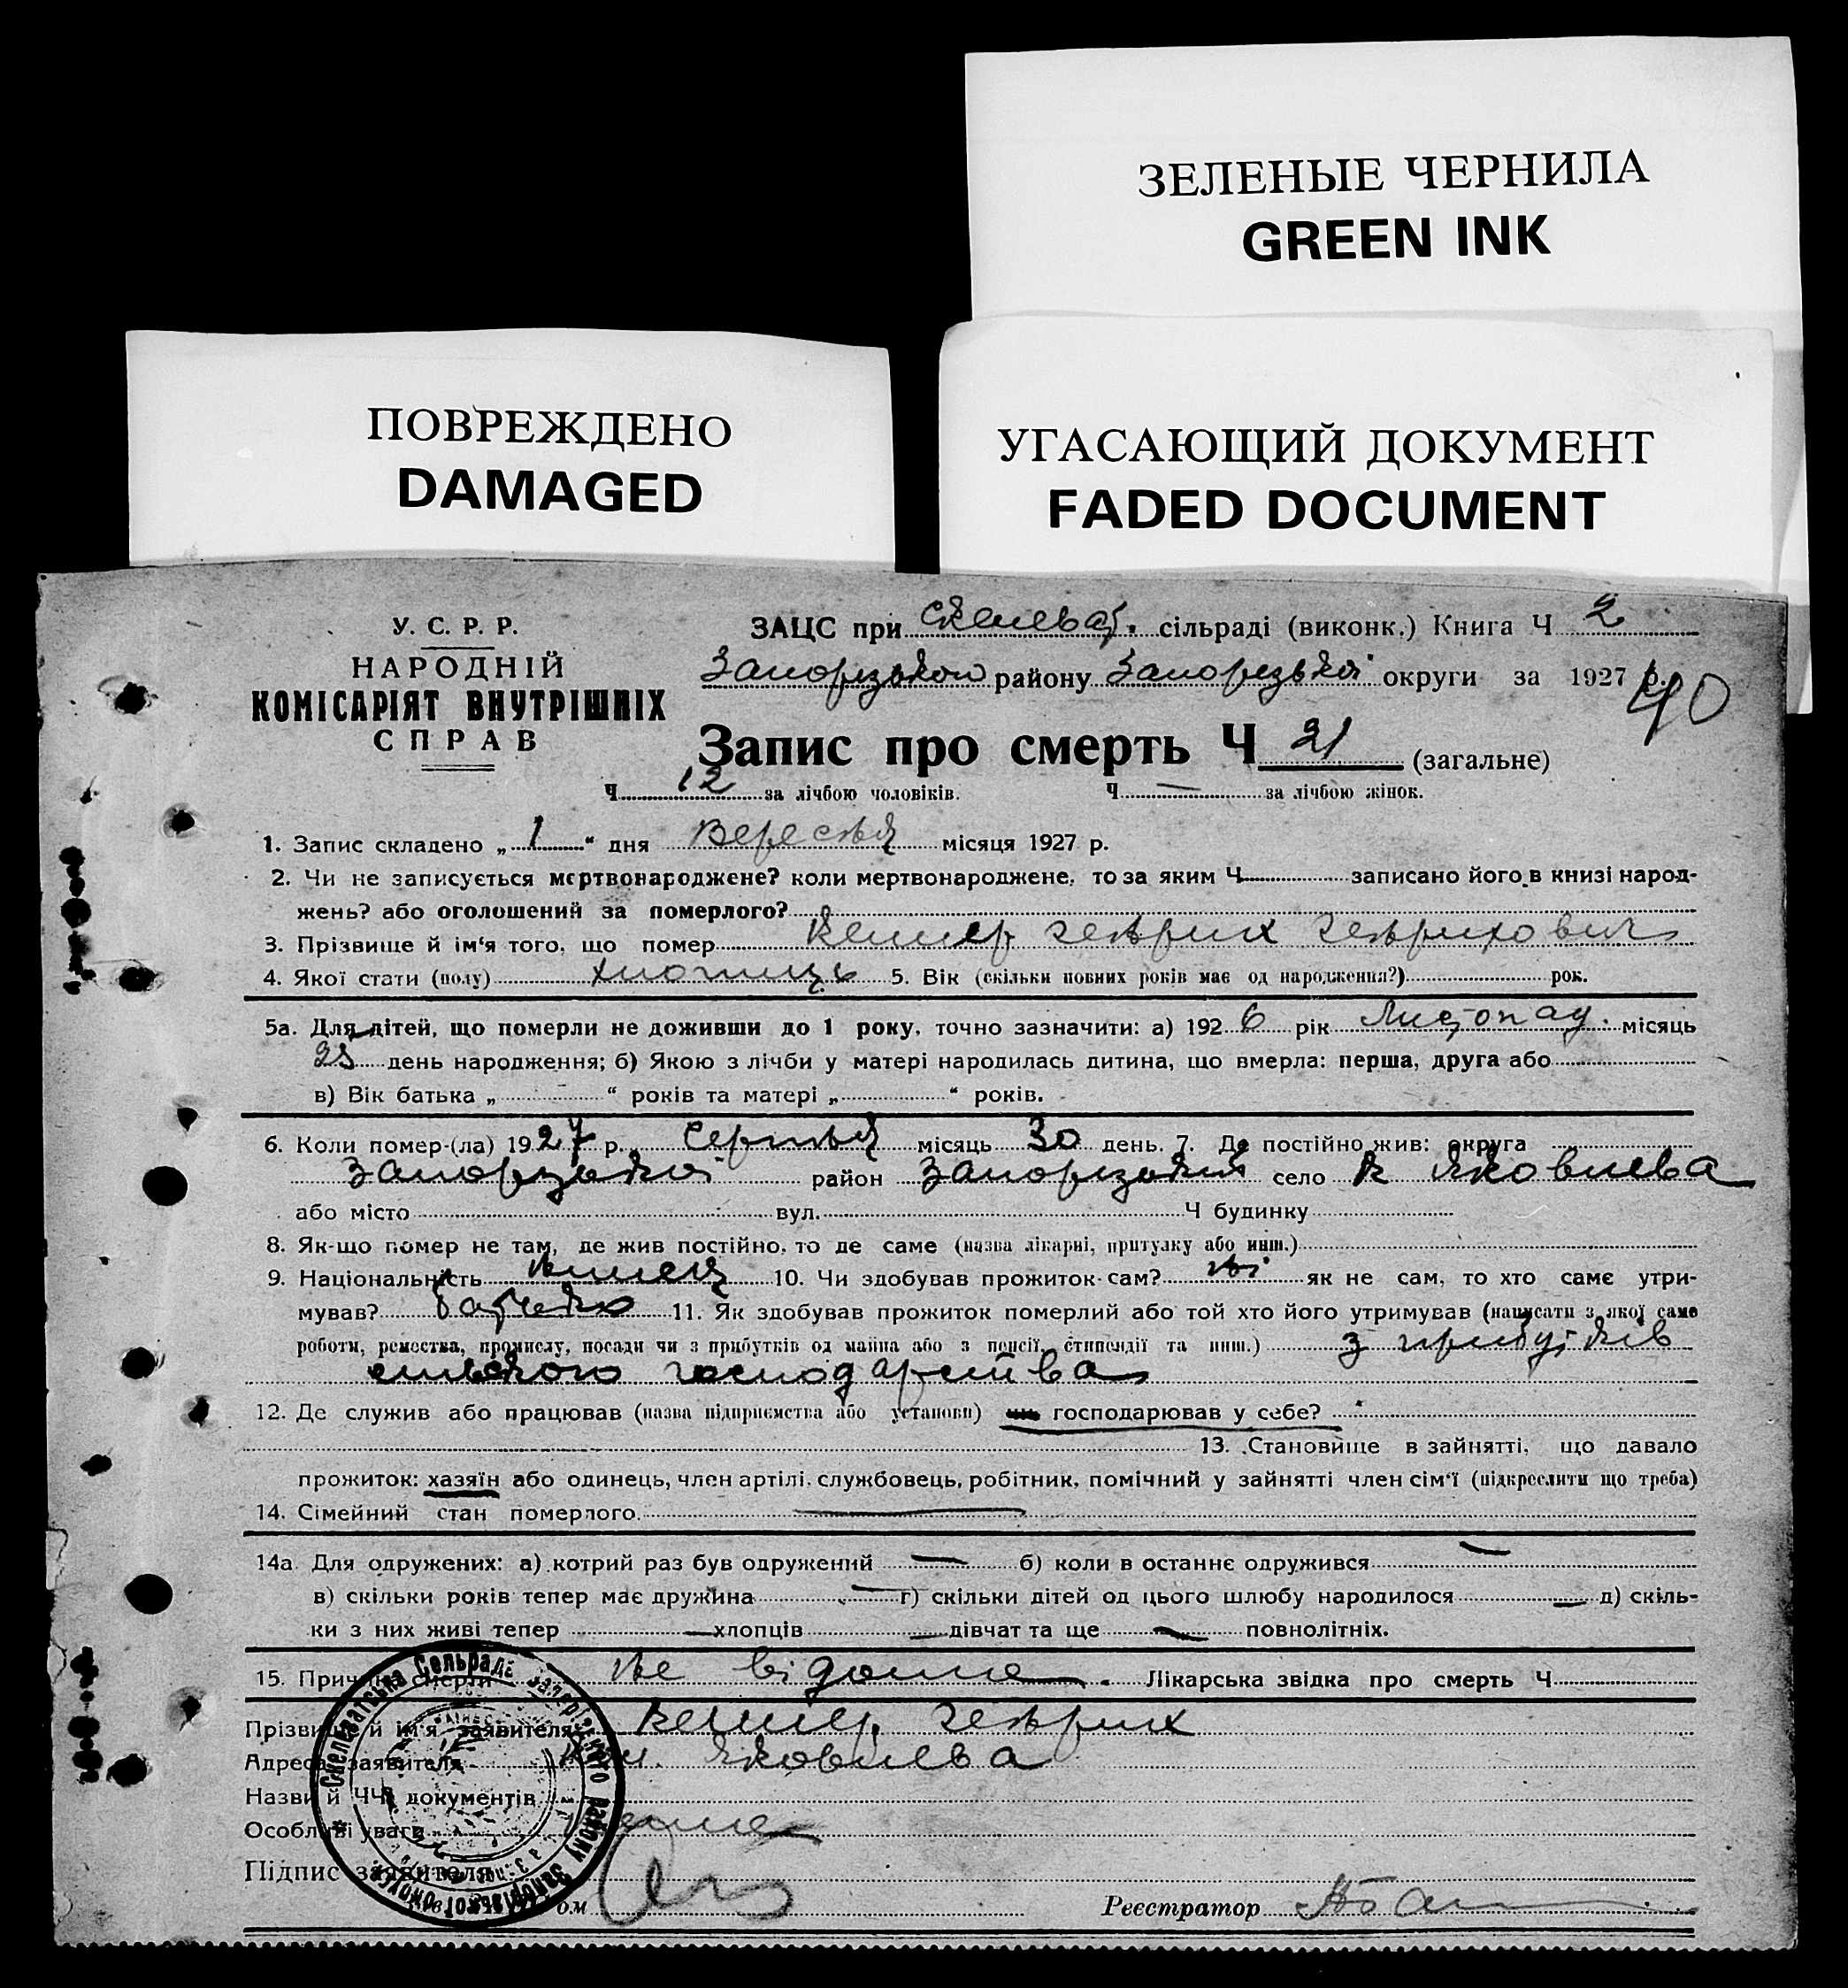 ЗЕЛЕНЫЕ ЧЕРНИЛА
GREEN INK
ПОВРЕЖДЕНО
DAMAGED
УГАСАЮЩИЙ ДОКУМЕНТ
FADED DOCUMENT
У. С. Р. Р.
НАРОДНІЙ
КОМІСАРІЯТ ВНУТРІШНІХ
СПРАВ
ЗАЦС при Скелеват. сільраді (виконк.) Книга Ч 2
Запорізького району Запорізької округи за 1927 р.
40
Запис про смерть Ч 21 (загальне)
Ч 12 за лічбою чоловіків. Ч — за лічбою жінок.
1. Запис складено „ 1 “ дня Вересня місяця 1927 р.
2. Чи не записується мертвонароджене? коли мертвонароджене, то за яким Ч записано його в книзі народ-
жень? або оголошений за померлого?
3. Прізвище й ім‘я того, що помер Генрих Генрихович
4. Якої стати (полу) хлопець 5. Вік (скільки повних років має од народження?) рок.
5а. Для дітей, що померли не доживши до 1 року, точно зазначити: а) 1926 рік Листопад. місяць
день народження; б) Якою з лічби у матері народилась дитина, що вмерла: перша, друга або
в) Вік батька „ “ років та матері „ “ років.
6. Коли помер-(ла) 1927 р. Серпня місяць 30 день. 7. Де постійно жив: округа
Запорізької район Запорізький село к Яковлева
або місто вул. Ч будинку
8. Як-що помер не там, де жив постійно, то де саме (назва лікарні, притулку або инш.)
9. Національність німець 10. Чи здобував прожиток сам? ні як не сам, то хто саме утри-
мував? батько 11. Як здобував прожиток померлий або той хто його утримував (написати з якої саме
роботи, ремества, промислу, посади чи з прибутків од майна або з пенсії, стипендії та инш.) з прибутків
сільского господарства
12. Де служив або працював (назва підприємства або установи) чи господарював у себе?
13. Становище в зайнятті, що давало
прожиток: хазяїн або одинець, член артілі, службовець, робітник, помічний у зайнятті член сім‘ї (підкреслити що треба)
14. Сімейний стан померлого. —
14а. Для одружених: а) котрий раз був одружений — б) коли в останнє одружився —
в) скільки років тепер має дружина — г) скільки дітей од цього шлюбу народилося — д) скіль-
ки з них живі тепер — хлопців — дівчат та ще — повнолітніх.
15. Причина смерти не відома. Лікарська звідка про смерть Ч
Прізвище й ім‘я заявителя Генрих
Адреса заявителя Кол. Яковлева
Назви й ЧЧ документів
Особливі уваги
Підпис заявителя
Реєстратор
Скелеватська Сельрада Запорізького району Запорізької округи